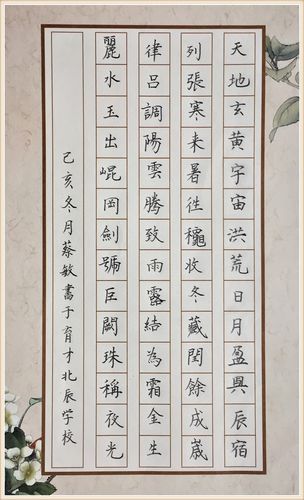 天地玄黄宇宙洪荒日月盈興辰宿
列張寒来暑徃穐收冬藏閏餘成嵗
律吕調陽雲騰致雨露結為霜金生
麗水玉出崐岡劍號巨闕珠稱夜光
己亥冬月蔡敏書于育才北辰學校